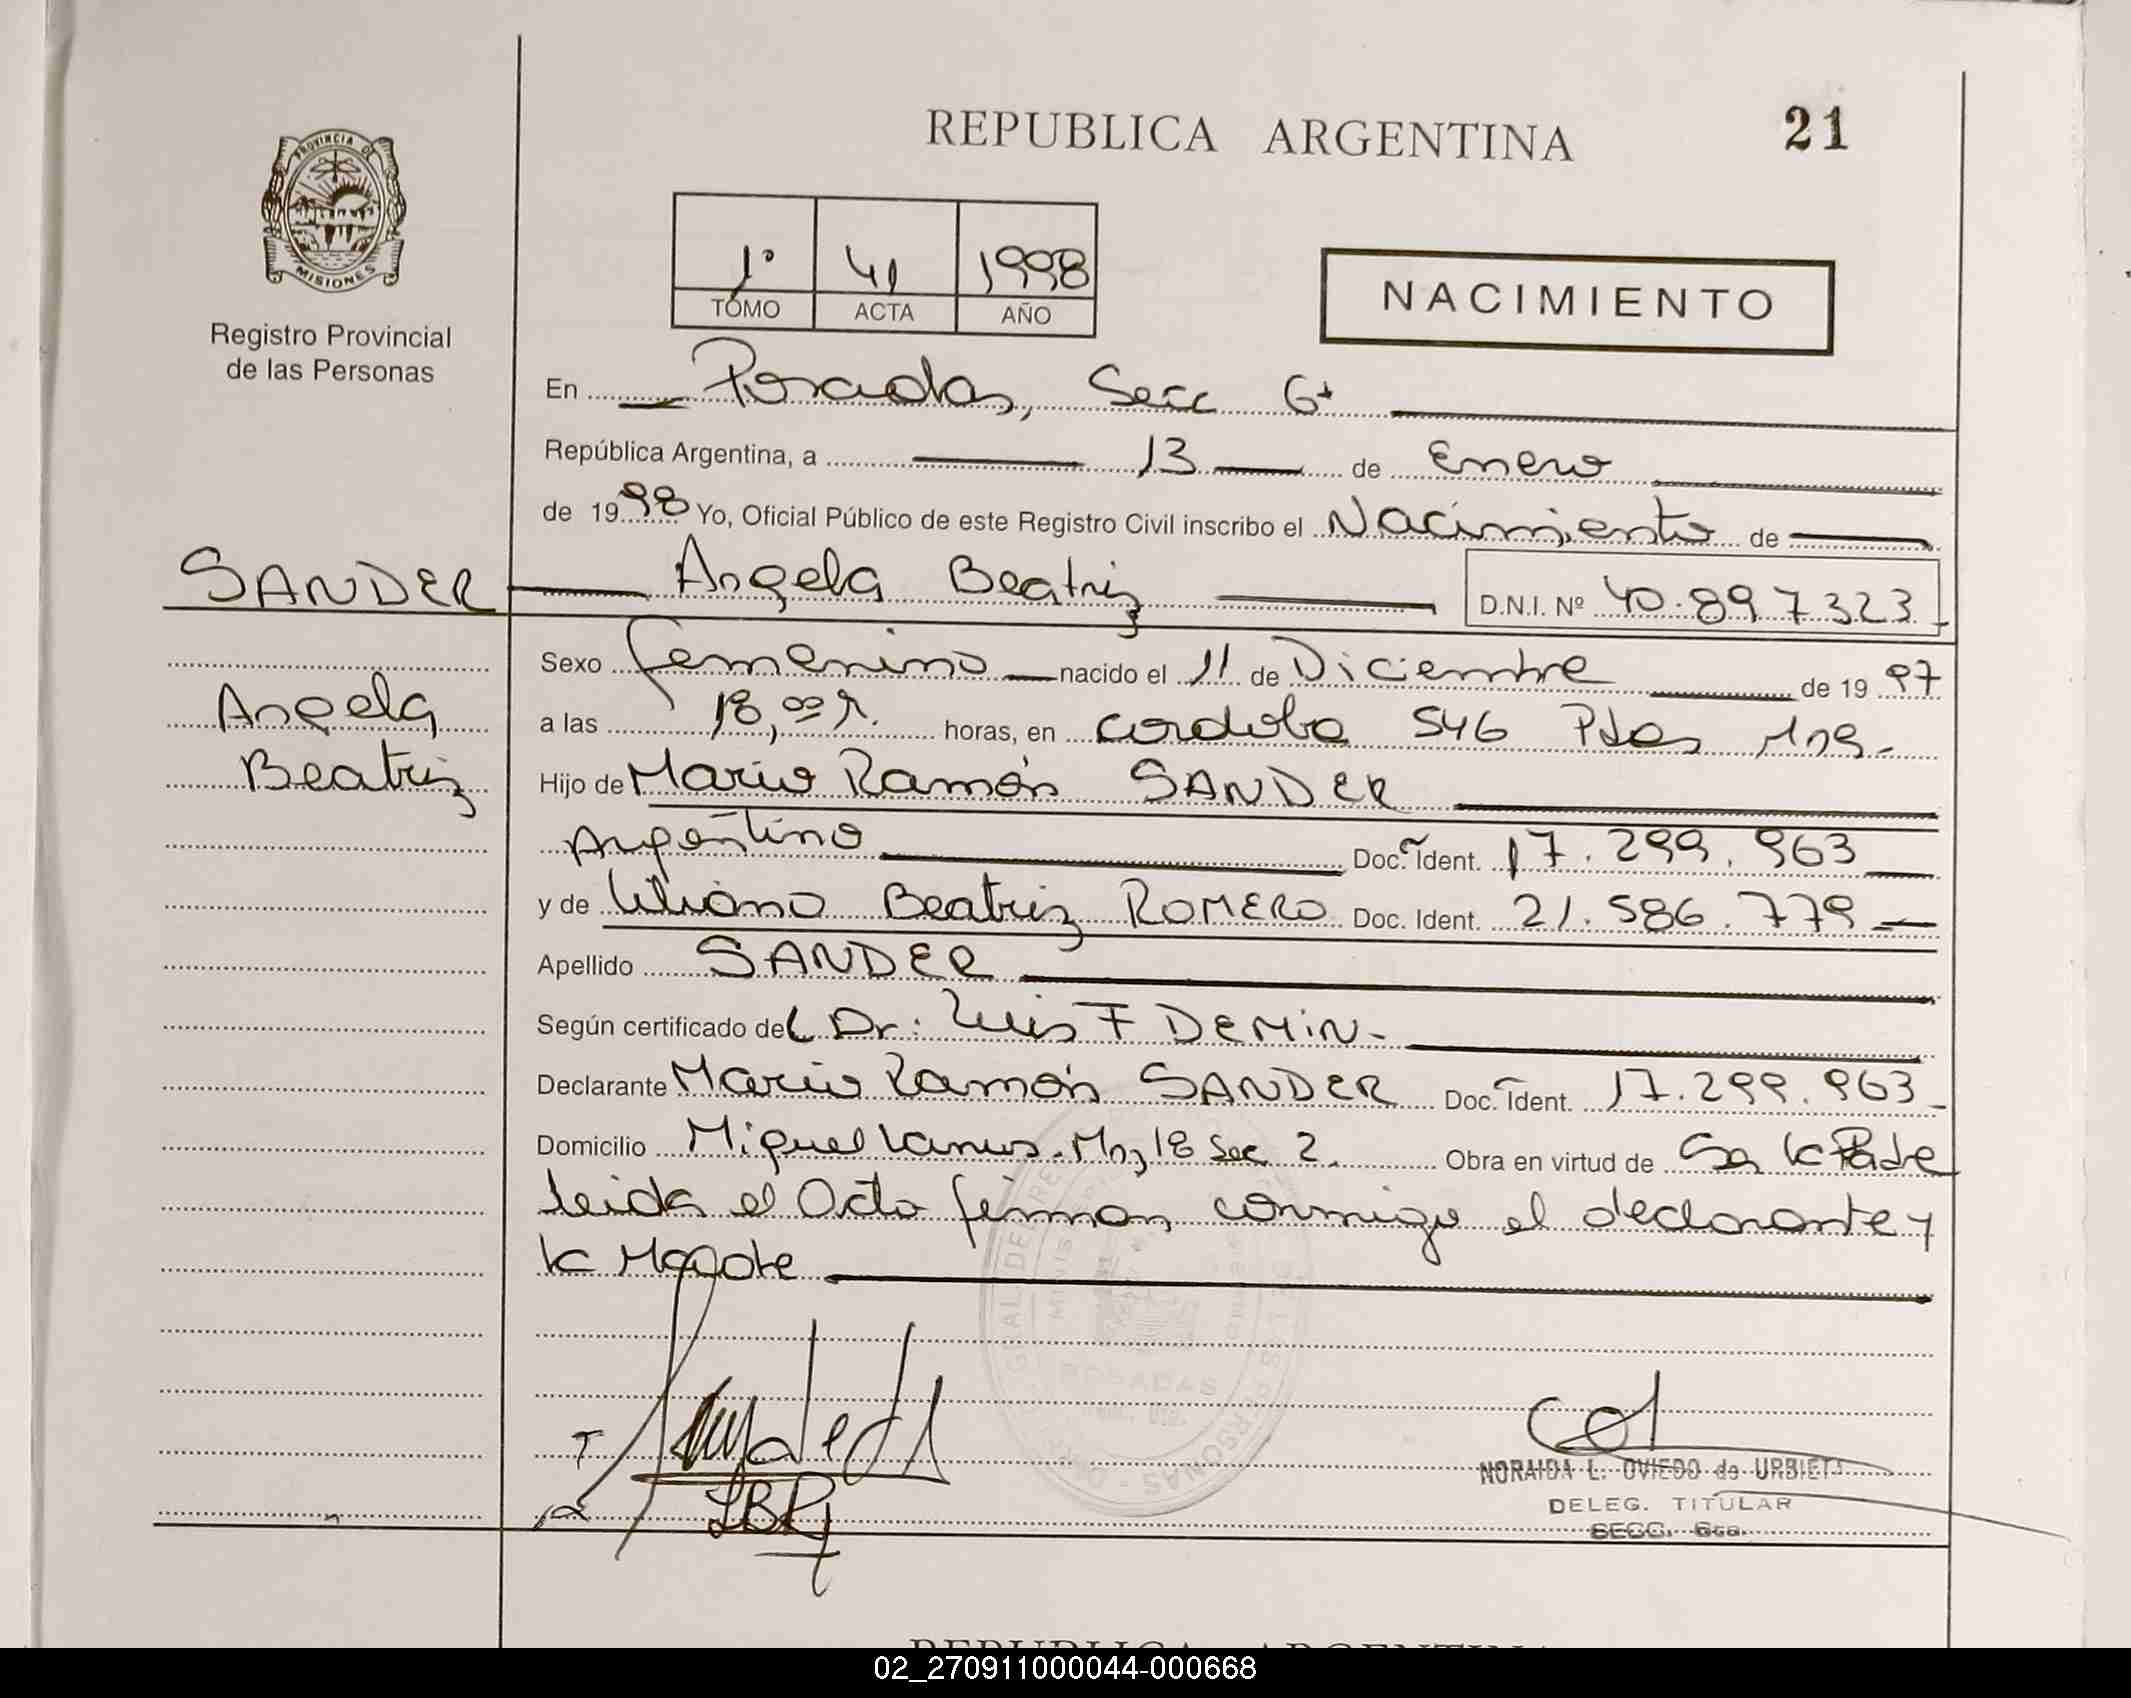 REPUBLICA ARGENTINA
21
PROVINCIA DE
MISIONES
Registro Provincial
de las Personas
1º 41 1998
TOMO ACTA AÑO
NACIMIENTO
En Posadas, Secc 6ª
República Argentina, a 13 de Enero
de 1998 Yo, Oficial Público de este Registro Civil inscribo el Nacimiento de
SANDER Angela Beatriz D.N.I. Nº 40.897323
Sexo femenino nacido el 11 de Diciembre de 1997
Angela
a las 18,00 h. horas, en cordoba 546 Pdas Mns-
Beatriz
Hijo de Mario Ramón SANDER
Argentino Doc. Ident. 17.299.963
y de Liliana Beatriz ROMERO Doc. Ident. 21.586.779
Apellido SANDER
Según certificado del Dr: Luis F DEMIN-
Declarante Mario Ramón SANDER Doc. Ident. 17.299.963
Domicilio Miguel Lanus. Mnz 18 Sec 2. Obra en virtud de Ser el Padre
leida el Acta firman conmigo el declarante y
la Madre
POSADAS
NORAIDA L. OVIEDO de URBIETA
DELEG. TITULAR
SECC. 6ta.
REPUBLICA ARGENTINA
02_270911000044-000668